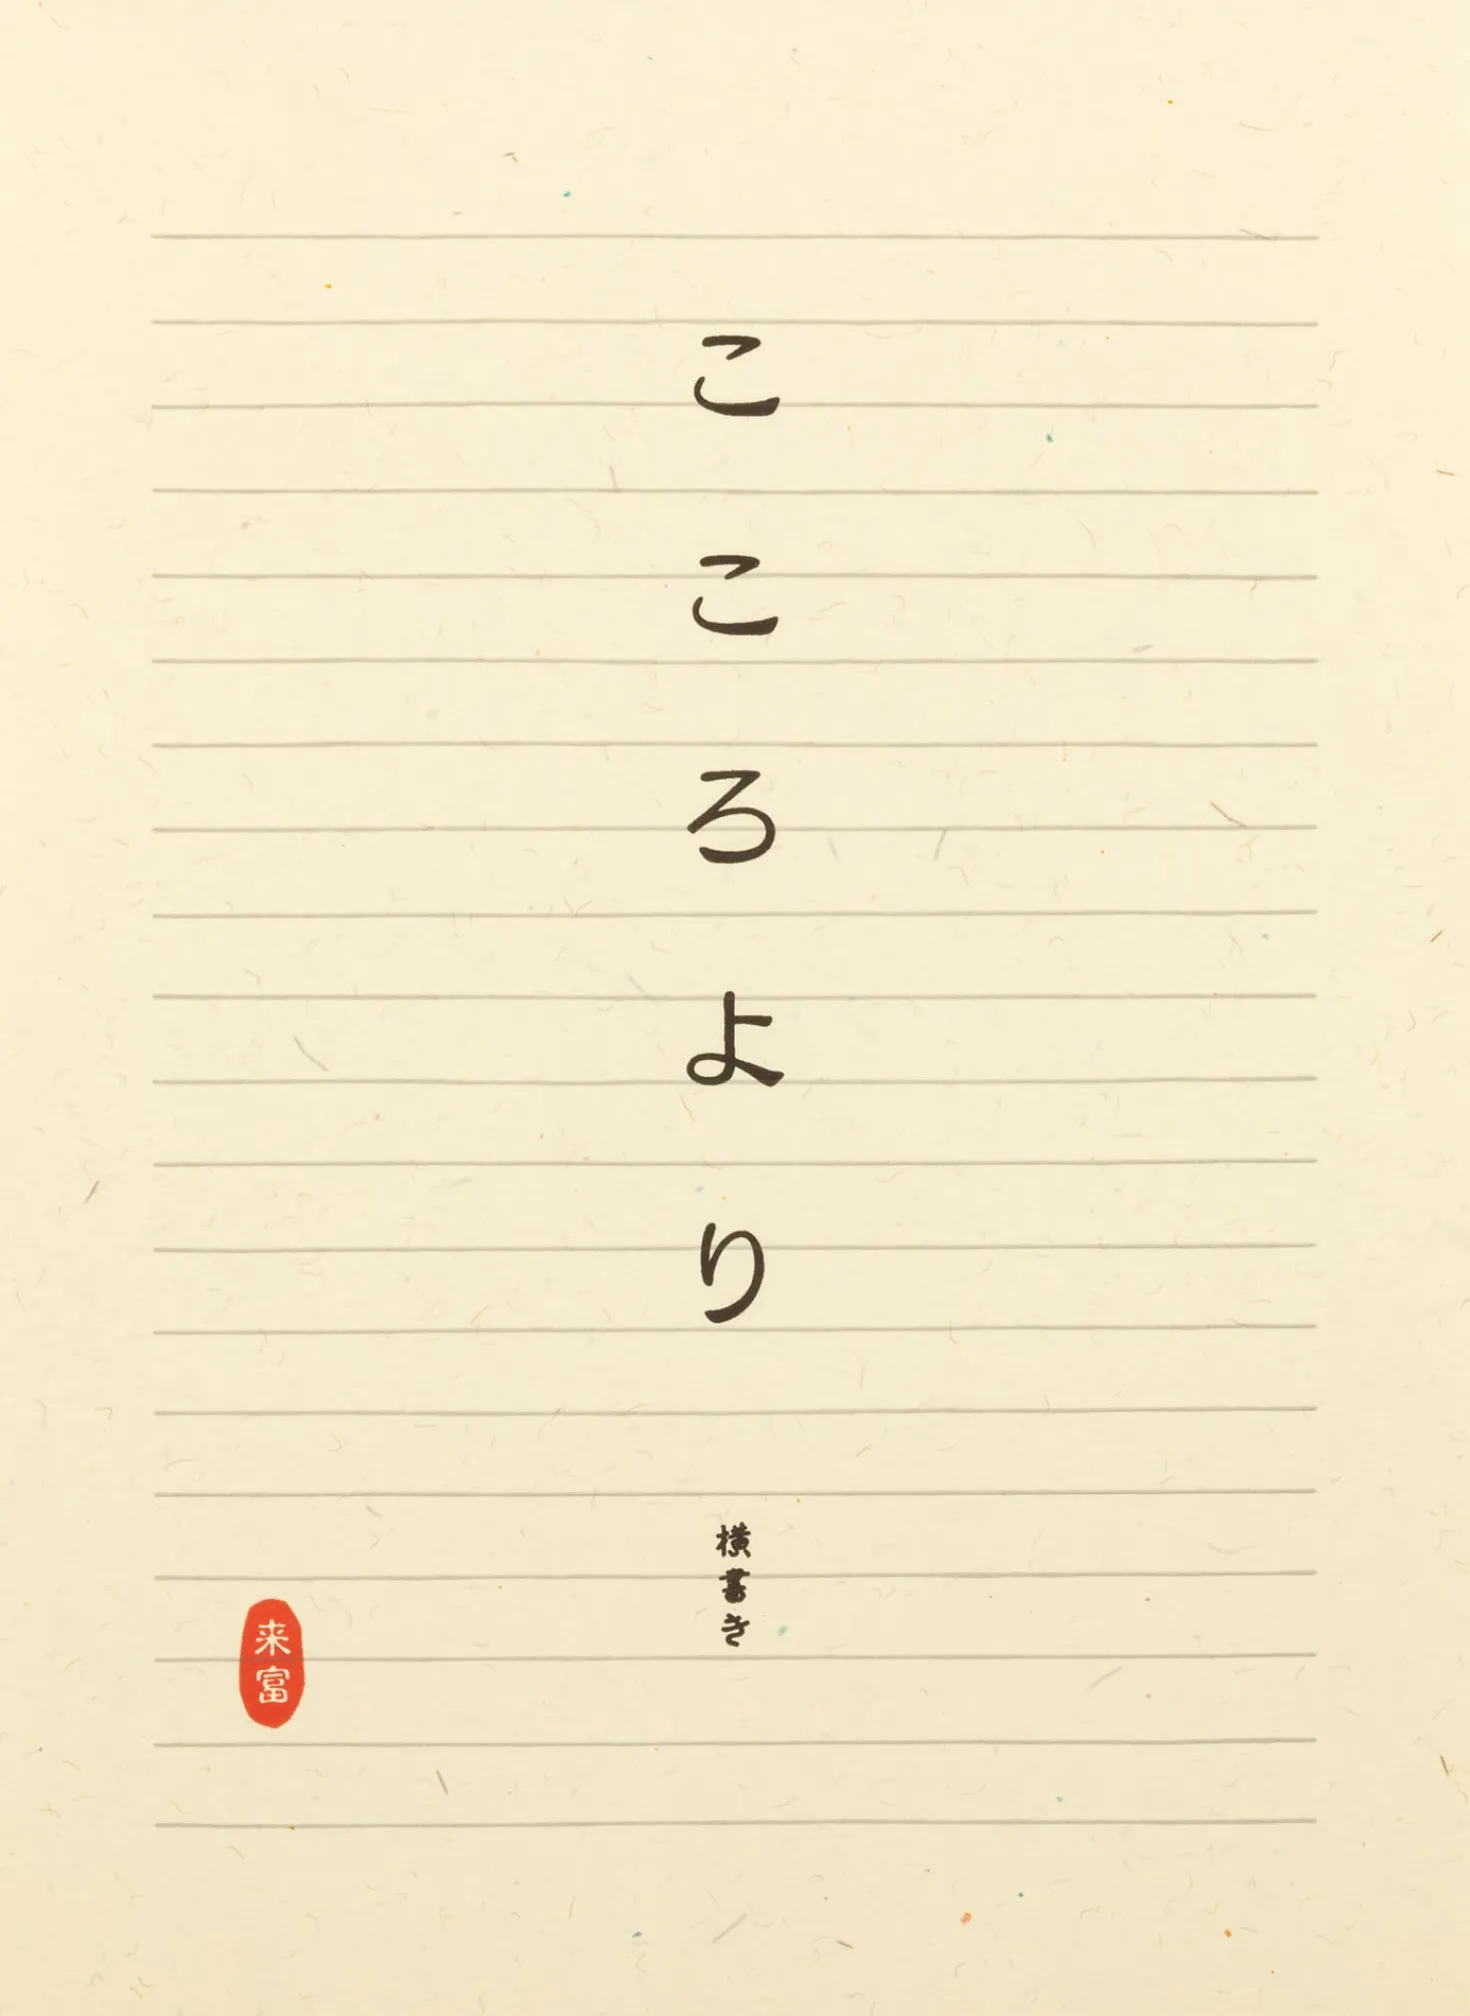 こころより
横書き
来富